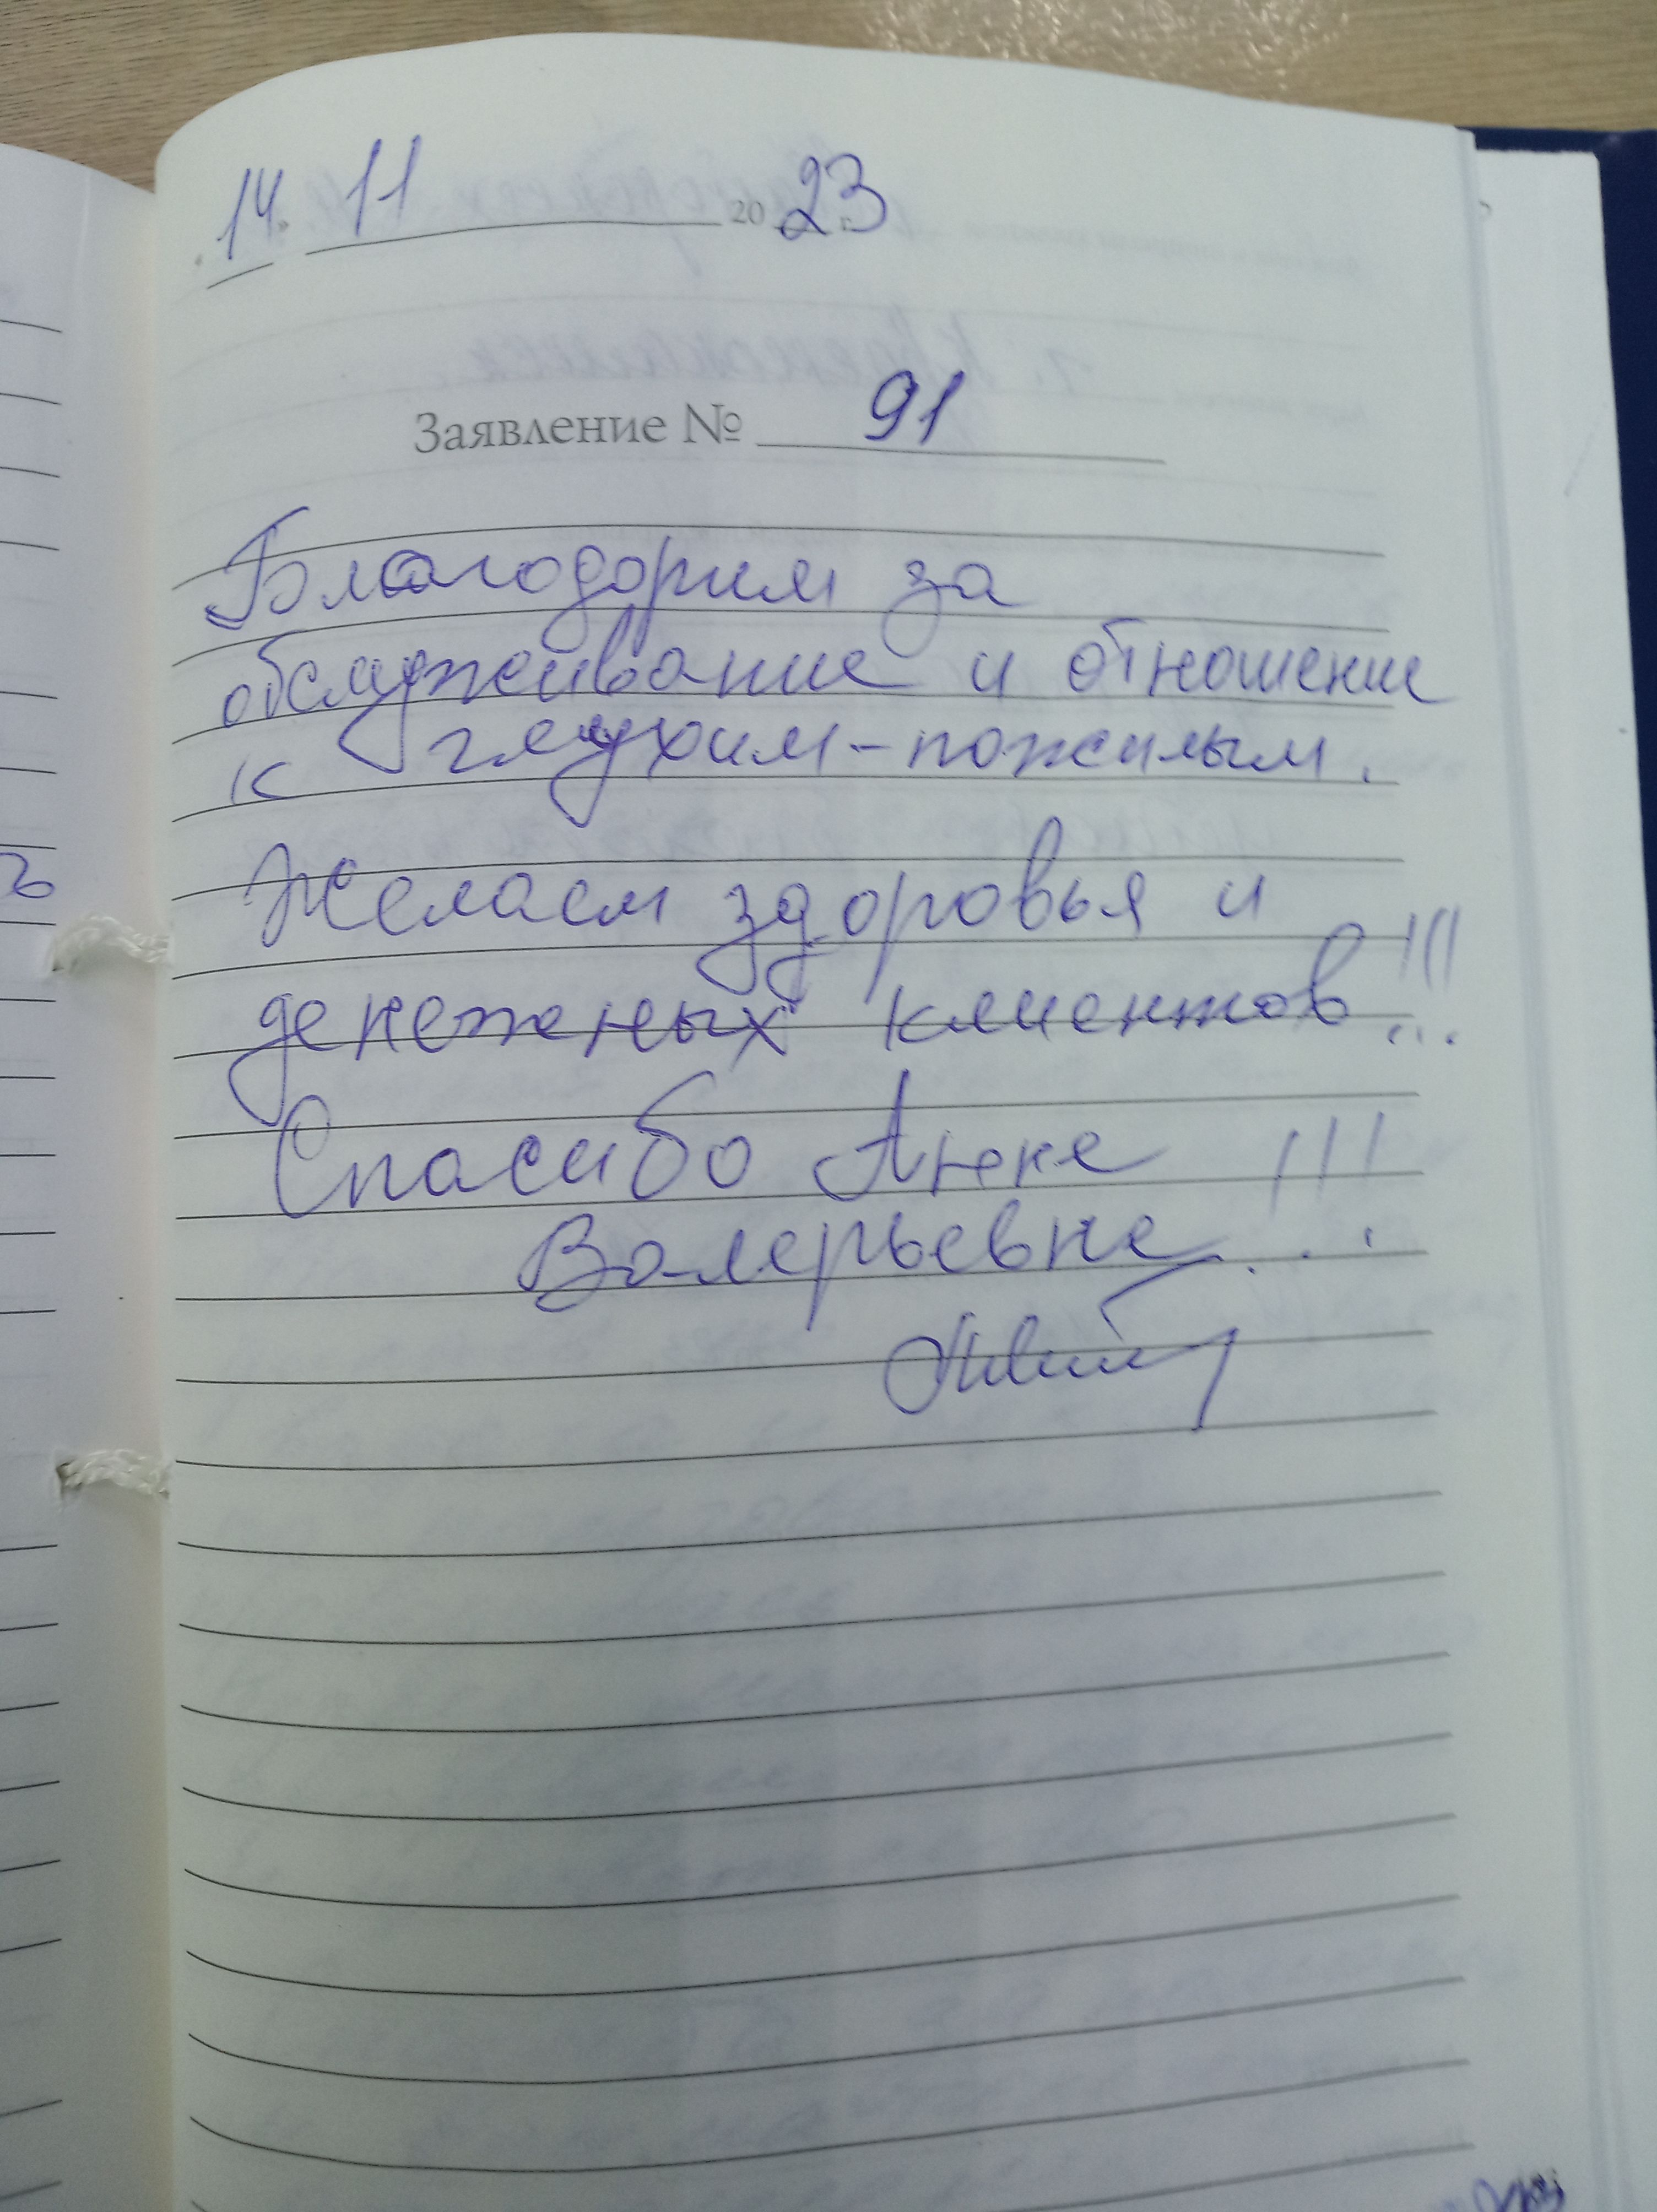 14. 11 2023 г.
Заявление № 91
Благодорим за
обслуживание и отношение
к глухим-пожилым.
Желаем здоровья и
денежных клиентов!!!
Спасибо Анне
Валерьевне!!!